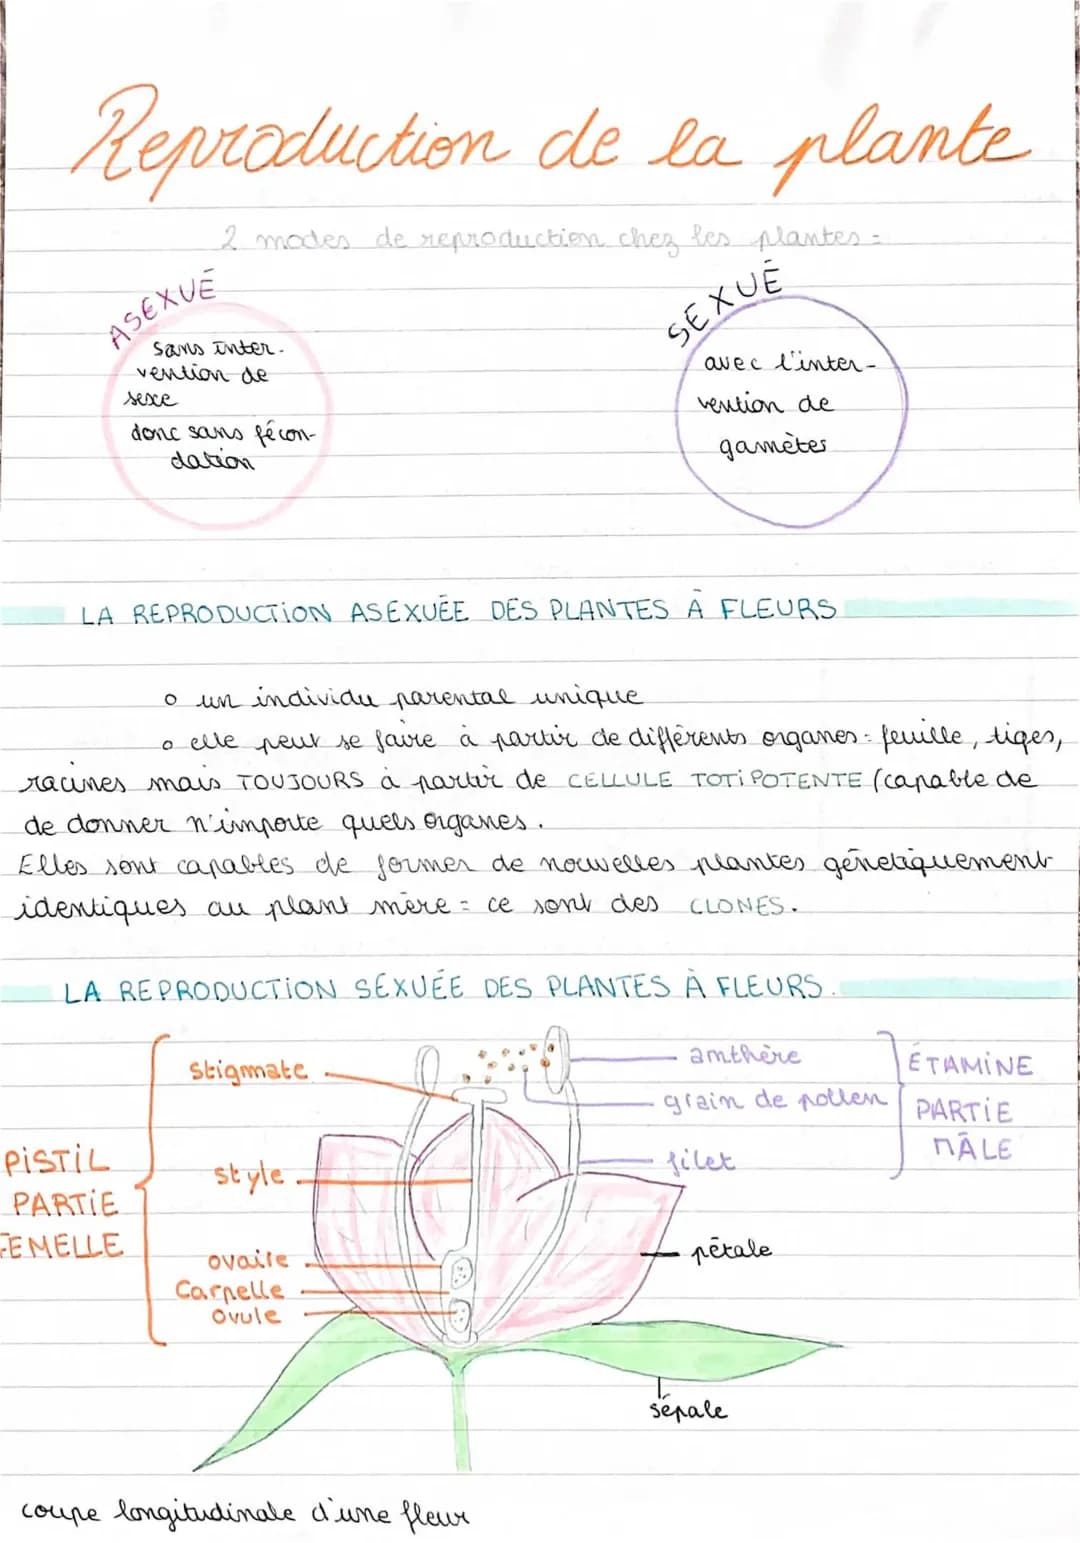 Reproduction de la plante
2 modes de reproduction chez les plantes =
ASEXUÉ
Sans inter-
vention de
sexe
donc sans fécon-
dation
SEXUÉ
avec l'inter-
vention de
gamètes
LA REPRODUCTION ASEXUÉE DES PLANTES À FLEURS
o un individu parental unique
o elle peut se faire à partir de différents organes = feuille, tiges,
racines mais TOUJOURS à partir de CELLULE TOTIPOTENTE (capable de
de donner n'importe quels organes.
Elles sont capables de former de nouvelles plantes génétiquement
identiques au plant mère = ce sont des CLONES.
LA REPRODUCTION SEXUÉE DES PLANTES À FLEURS.
PISTIL
PARTIE
FEMELLE
Stigmate
style
ovaire
Carpelle
ovule
anthère
grain de pollen
filet
ÉTAMINE
PARTIE
MÂLE
pétale
sépale
coupe longitudinale d'une fleur